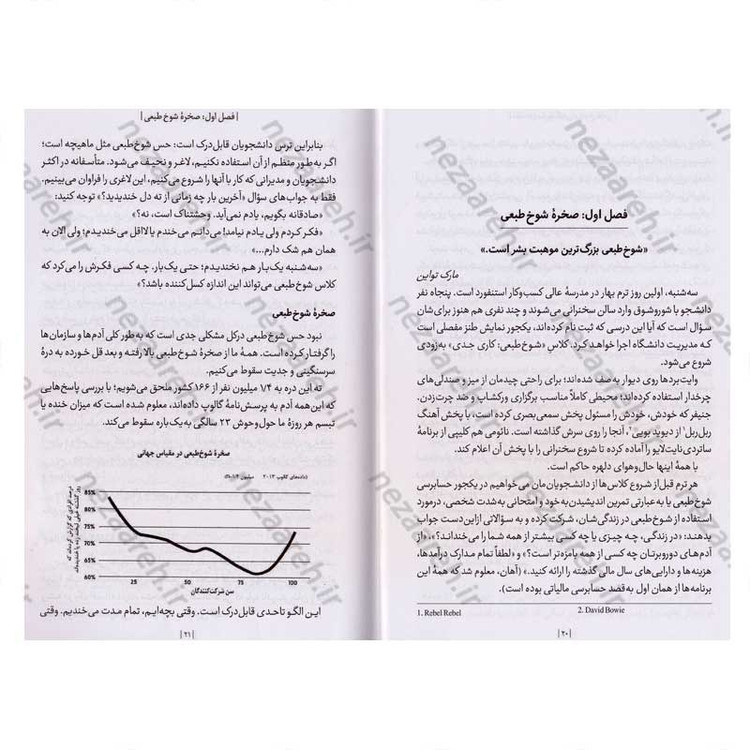 فصل اول: صخرهٔ شوخ‌طبعی
«شوخ‌طبعی بزرگ‌ترین موهبت بشر است.»
مارک تواین
سه‌شنبه، اولین روز ترم بهار در مدرسه عالی کسب‌وکار استنفورد است. پنجاه نفر
دانشجو با شوروشوق وارد سالن سخنرانی می‌شوند و چند نفری هم هنوز برای‌شان
سؤال است که آیا این درسی که ثبت نام کرده‌اند، یکجور نمایش طنز مفصلی است
که مدیریت دانشگاه اجرا خواهد کرد. کلاس «شوخ‌طبعی: کاری جدی» به‌زودی
شروع می‌شود.
وایت‌بردها روی دیوار به‌صف شده‌اند؛ برای راحتی چیدمان از میز و صندلی‌های
چرخدار استفاده کرده‌اند؛ محیطی کاملاً مناسب برگزاری ورکشاپ و ضد چرت‌زدن.
جنیفر که خودش، خودش را مسئول پخش سمعی‌بصری کرده است، با پخش آهنگ
ربل‌ربل¹ از دیوید بویی²، آنجا را روی سرش گذاشته است. نائومی هم کلیپی از برنامهٔ
ساتردی‌نایت‌لایو را آماده کرده تا شروع سخنرانی را با پخش آن اعلام کند.
با همهٔ اینها حال‌وهوای دلهره حاکم است.
هر ترم قبل از شروع کلاس‌ها از دانشجویان‌مان می‌خواهیم در یکجور حسابرسی
شوخ‌طبعی یا به‌عبارتی تمرین اندیشیدن‌به‌خود و امتحانی به‌شدت شخصی، درمورد
استفاده از شوخ‌طبعی در زندگی‌شان، شرکت کرده و به سؤالاتی ازاین‌دست جواب
بدهند: «در زندگی، چه چیزی یا چه کسی بیشتر از همه شما را می‌خنداند؟»، «از
آدم‌های دوروبرتان چه کسی از همه بامزه‌تر است؟» و «لطفاً تمام مدارک درآمدها،
هزینه‌ها و دارایی‌های سال مالی گذشته را ارائه کنید.» (آهان، معلوم شد که همهٔ این
برنامه‌ها از همان اول به‌قصد حسابرسی مالیاتی بوده است).
1. Rebel Rebel 2. David Bowie
| ۲۰ |
| فصل اول: صخرهٔ شوخ‌طبعی |
بنابراین ترس دانشجویان قابل‌درک است: حس شوخ‌طبعی مثل ماهیچه است؛
اگر به‌طور منظم از آن استفاده نکنیم، لاغر و نحیف می‌شود. متأسفانه در اکثر
دانشجویان و مدیرانی که کار با آنها را شروع می‌کنیم، این لاغری را فراوان می‌بینیم.
فقط به جواب‌های سؤال «آخرین بار چه زمانی از ته دل خندیدید؟» توجه کنید:
«صادقانه بگویم، یادم نمی‌آید. وحشتناک است، نه؟»
«فکر کردم ولی یادم نیامد! می‌دانم می‌خندم یا لااقل می‌خندیدم؛ ولی الان به
همان هم شک دارم...»
«سه‌شنبه یک‌بار هم نخندیدم؛ حتی یک‌بار. چه کسی فکرش را می‌کرد که
کلاس شوخ‌طبعی می‌تواند این اندازه کسل‌کننده باشد؟»
صخرهٔ شوخ‌طبعی
نبود حس شوخ‌طبعی درکل مشکلی جدی است که به‌طور کلی آدم‌ها و سازمان‌ها
را گرفتار کرده است. همهٔ ما از صخرهٔ شوخ‌طبعی بالا رفته و بعد قل خورده به درهٔ
سرسنگینی و جدیت سقوط می‌کنیم.
ته این دره به ۱/۴ میلیون نفر از ۱۶۶ کشور ملحق می‌شویم؛ با بررسی پاسخ‌هایی
که این‌همه آدم به پرسش‌نامهٔ گالوپ داده‌اند، معلوم شده است که میزان خنده یا
تبسم هر روزهٔ ما حول‌وحوش ۲۳ سالگی به‌یک‌باره سقوط می‌کند.
صخرهٔ شوخ‌طبعی در مقیاس جهانی
(داده‌های گالوپ ۲۰۱۳
85%
80%
75%
70%
65%
60%
25 50 75 100
سن شرکت‌کنندگان
این الگو تاحدی قابل‌درک است. وقتی بچه‌ایم، تمام مدت می‌خندیم. وقتی
| ۲۱ |
nezaareh.ir